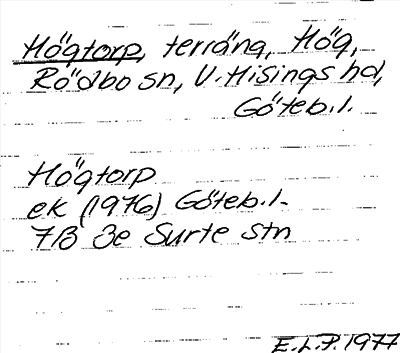 Högtorp, terräng, Hög,
Rödbo sn, V. Hisings hd,
Göteb.l.
Högtorp
ek (1976) Göteb.l-
7B 3e Surte stn
E.L.P. 1977